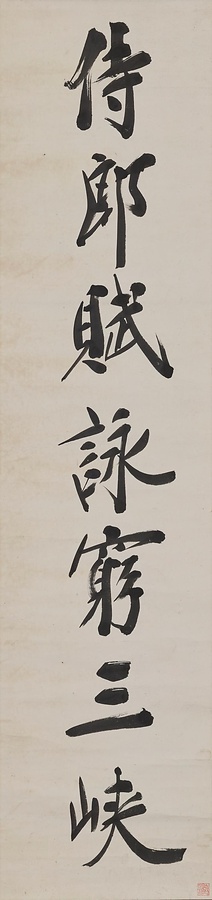 侍郎賦詠窮三峽